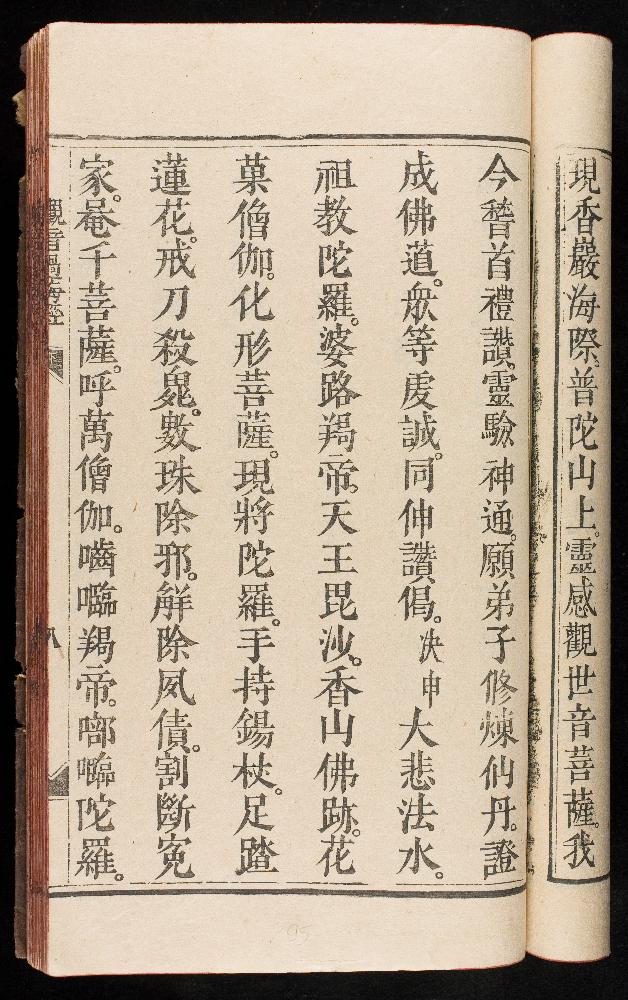 現香巖海際。普陀山上。靈感觀世音菩薩。我
今稽首禮讚。靈驗神通。願弟子修煉仙丹。證
成佛道。衆等虔誠。同伸讚偈。決申大悲法水。
祖教陀羅。婆路羯帝。天王毘沙。香山佛跡。花
菓僧伽。化形菩薩。現將陀羅。手持錫杖。足踏
蓮花。戒刀殺鬼。數珠除邪。觧除夙債。割斷寃
家。菴千菩薩。呼萬僧伽。嚙𡄯羯帝。啣𡄯陀羅。
八